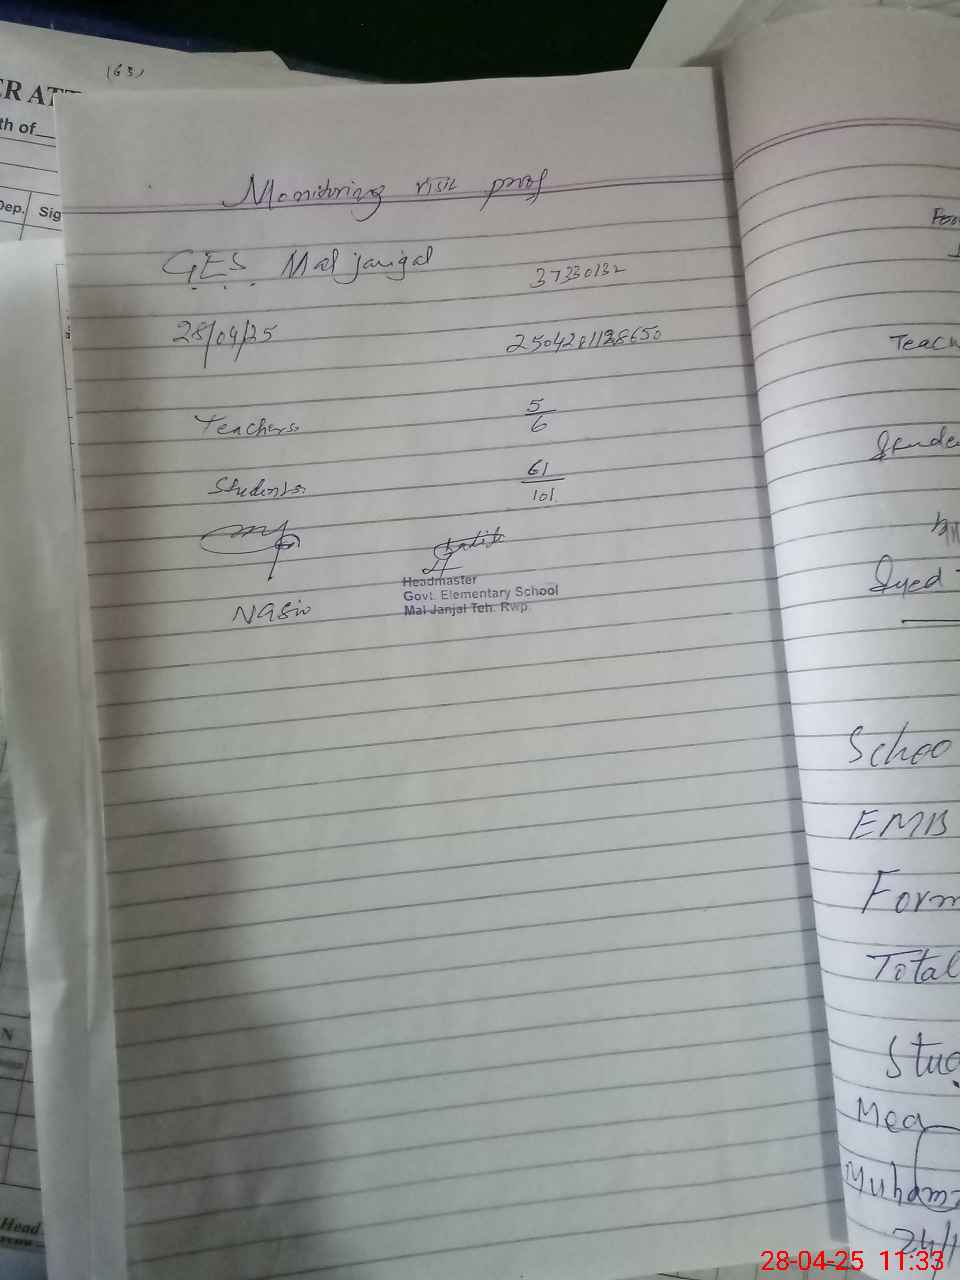 (63)
ER ATT
th of
Dep. Sig
Monitoring visit prof
GES Mal jangal
37330132
28/04/25
Teachers 5/6
Students 61/101
Headmaster
Govt. Elementary School
Mal Janjal Teh. Rwp.
Teach
Stude
Syed
Schoo
EMB
Form
Total
Stud
Mea
Muham
24/
N
Head
28-04-25 11:33